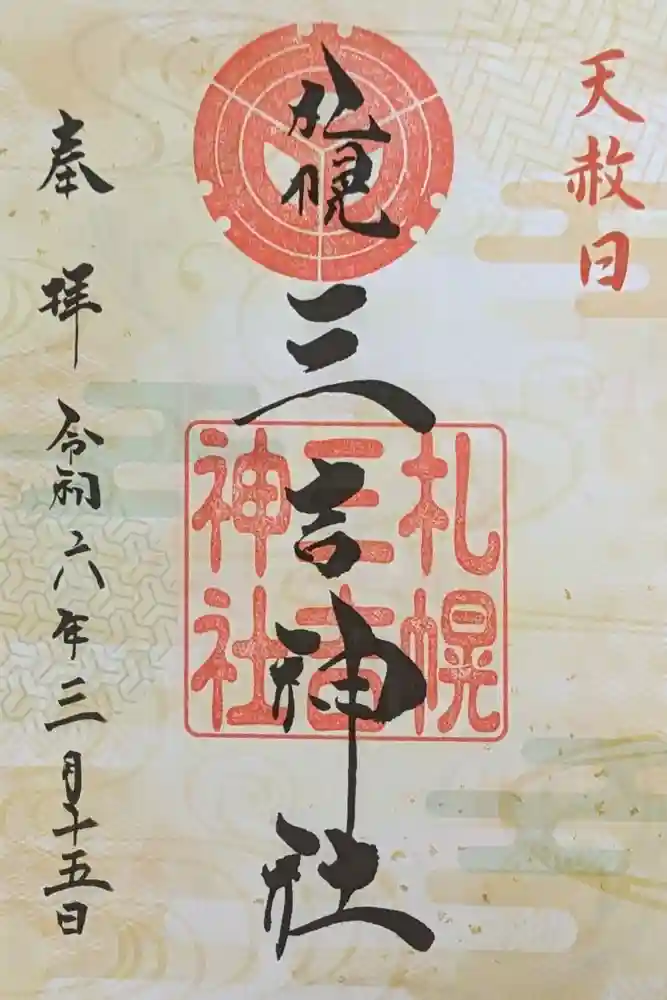 天赦日
札幌
三吉神社
札幌
三吉
神社
奉拝
令和六年三月十五日